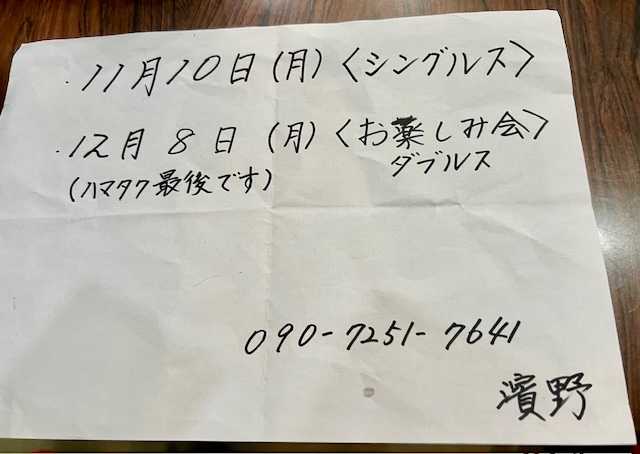 ・11月10日(月)〈シングルス〉
・12月8日(月)〈お楽しみ会〉
ダブルス
(ハマタク最後です)
090-7251-7641
濱野